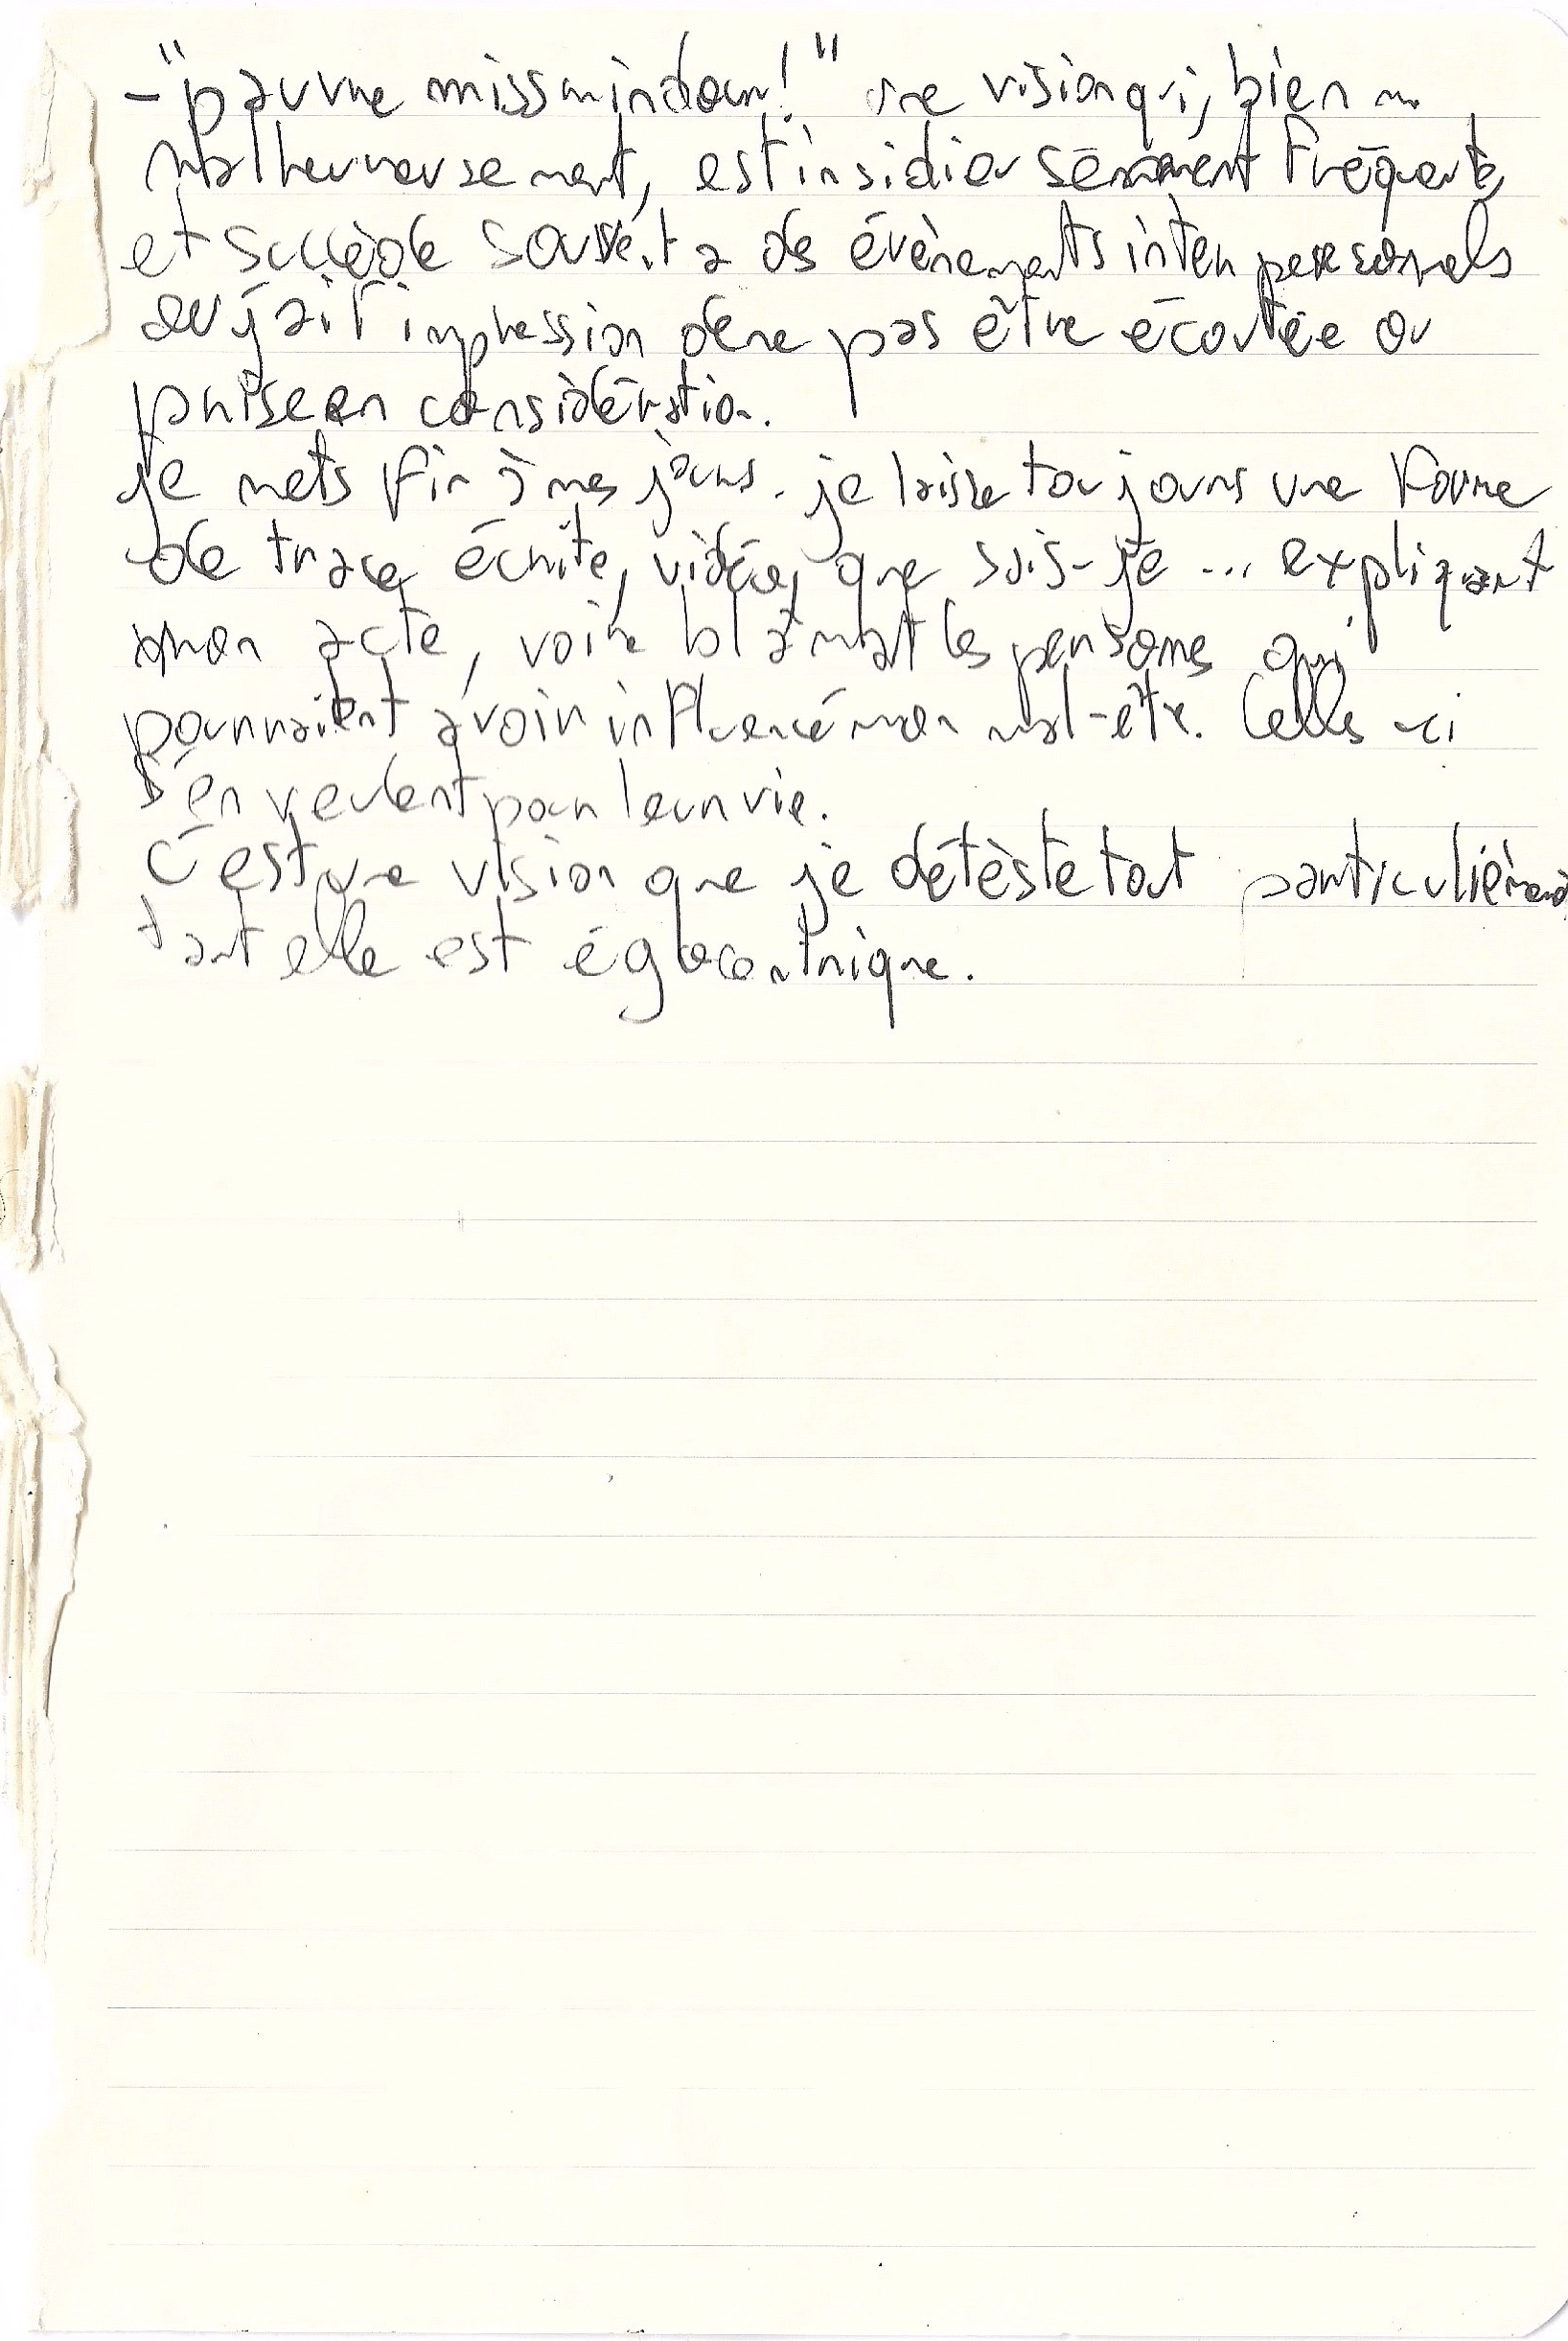 - "pauvre miss mindour!" une vision qui, bien m
malheureusement, est insidieusement fréquente,
et succède souvent a des évènements interpersonnels
où j'ai l'impression de ne pas être écoutée ou
prise en considération.
je mets fin à mes jours. je laisse toujours une forme
de trace écrite, vidéo, que sais-je ... expliquant
mon acte, voire blâmant les personnes qui
pourraient avoir influencé mon mal-être. Celles-ci
s'en veulent pour leur vie.
C'est une vision que je détèste tout particulièrement
tant elle est égocentrique.